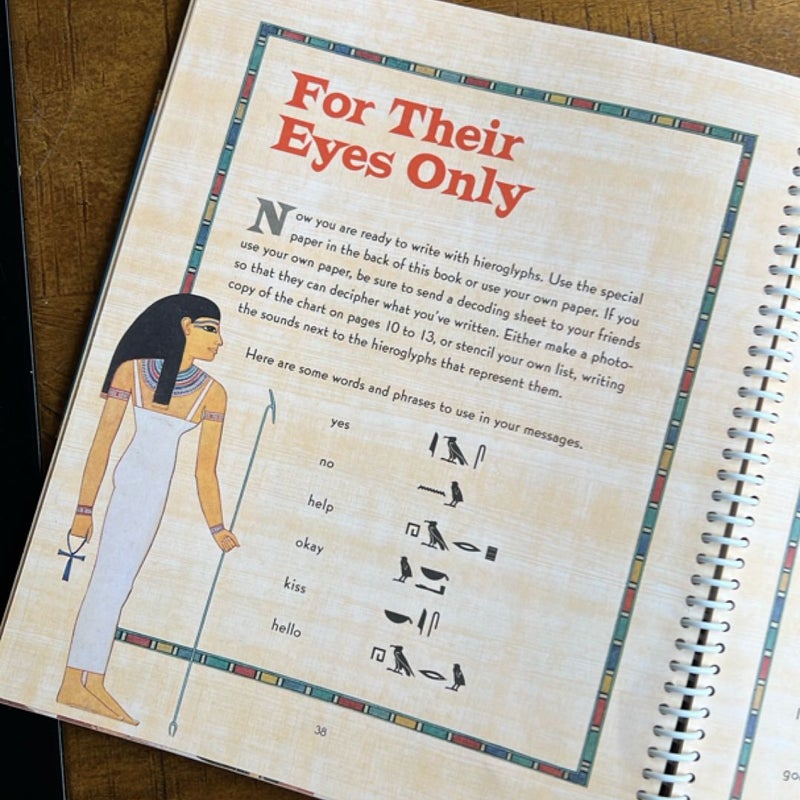 For Their
Eyes Only
Now you are ready to write with hieroglyphs. Use the special
paper in the back of this book or use your own paper. If you
use your own paper, be sure to send a decoding sheet to your friends
so that they can decipher what you've written. Either make a photo-
copy of the chart on pages 10 to 13, or stencil your own list, writing
the sounds next to the hieroglyphs that represent them.
Here are some words and phrases to use in your messages.
yes
no
help
okay
kiss
hello
38